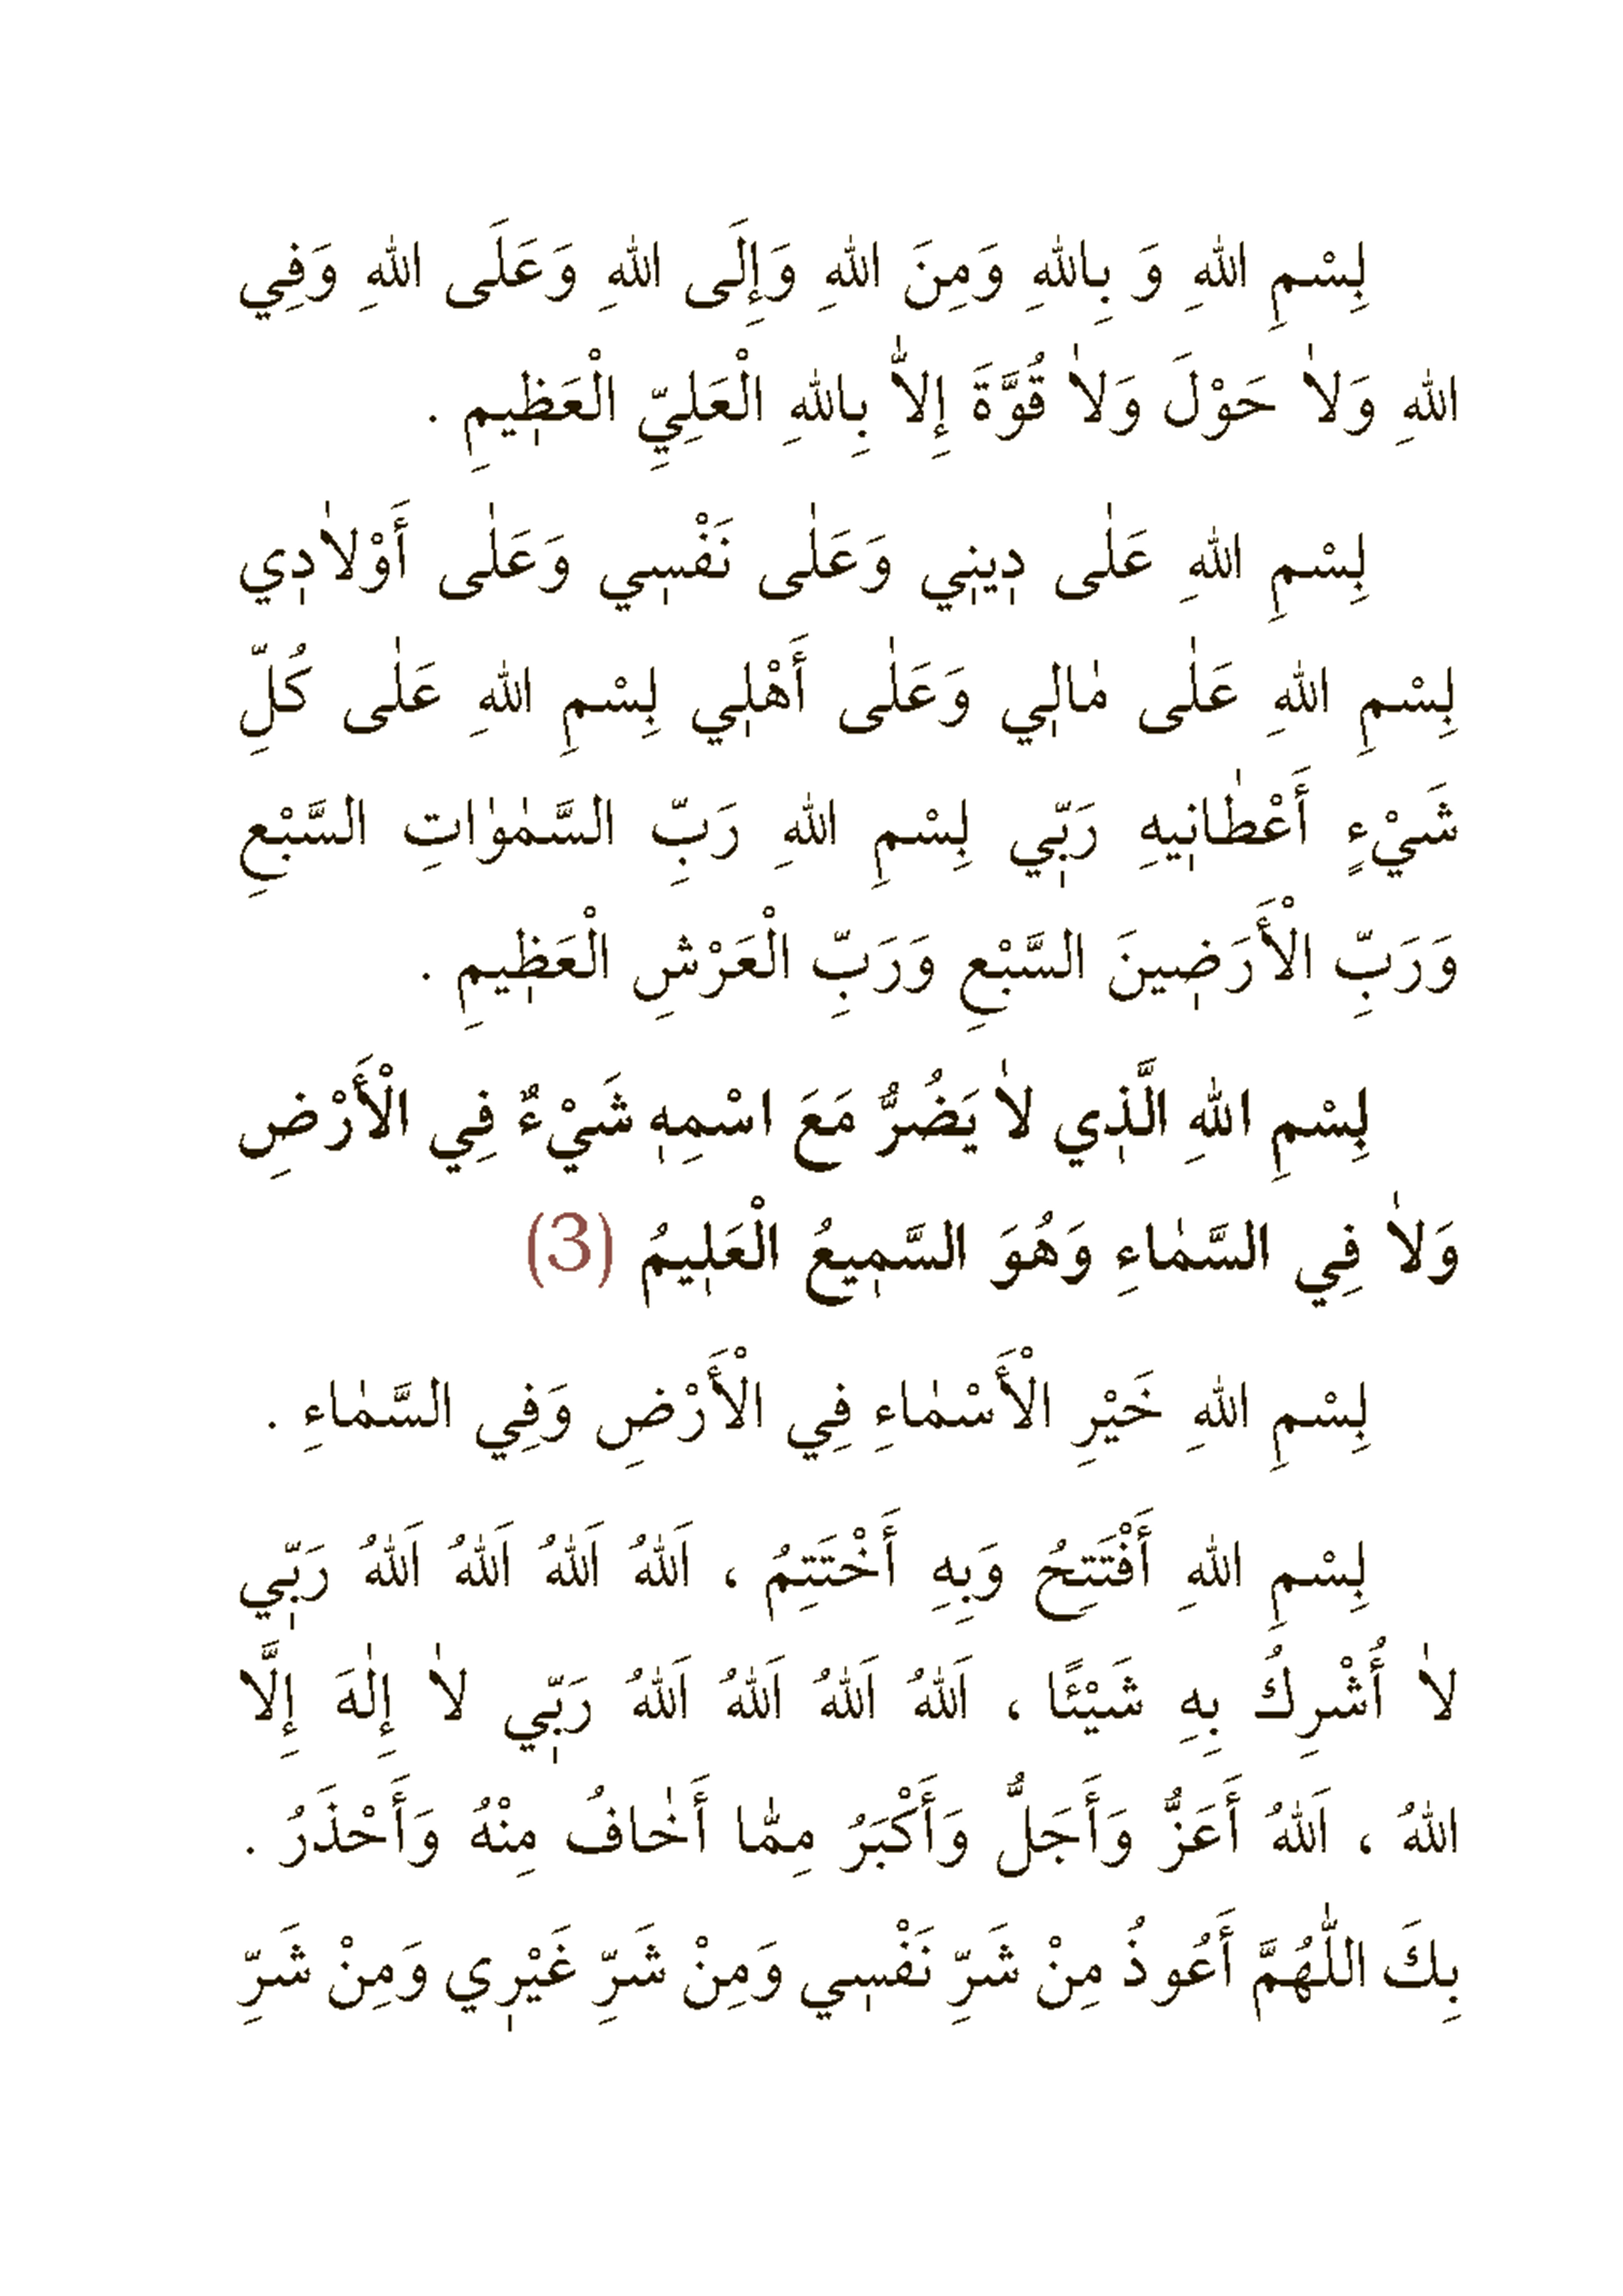 بِسْمِ اللهِ وَ بِاللهِ وَمِنَ اللهِ وَإِلَى اللهِ وَعَلَى اللهِ وَفِي
اللهِ وَلاٰ حَوْلَ وَلاٰ قُوَّةَ إِلاّٰ بِاللهِ الْعَلِيِّ الْعَظٖيمِ .
بِسْمِ اللهِ عَلٰى دٖينٖي وَعَلٰى نَفْسٖي وَعَلٰى أَوْلاٰدٖي
بِسْمِ اللهِ عَلٰى مٰالٖي وَعَلٰى أَهْلٖي بِسْمِ اللهِ عَلٰى كُلِّ
شَيْءٍ أَعْطٰانٖيهِ رَبّٖي بِسْمِ اللهِ رَبِّ السَّمٰوٰاتِ السَّبْعِ
وَرَبِّ الْأَرَضٖينَ السَّبْعِ وَرَبِّ الْعَرْشِ الْعَظٖيمِ .
بِسْمِ اللهِ الَّذٖي لاٰ يَضُرُّ مَعَ اسْمِهٖ شَيْءٌ فِي الْأَرْضِ
وَلاٰ فِي السَّمٰاءِ وَهُوَ السَّمٖيعُ الْعَلٖيمُ (3)
بِسْمِ اللهِ خَيْرِ الْأَسْمٰاءِ فِي الْأَرْضِ وَفِي السَّمٰاءِ .
بِسْمِ اللهِ أَفْتَتِحُ وَبِهِ أَخْتَتِمُ ، اَللهُ اَللهُ اَللهُ اَللهُ رَبّٖي
لاٰ أُشْرِكُ بِهِ شَيْئًا ، اَللهُ اَللهُ اَللهُ اَللهُ رَبّٖي لاٰ إِلٰهَ إِلَّا
اللهُ ، اَللهُ أَعَزُّ وَأَجَلُّ وَأَكْبَرُ مِمّٰا أَخٰافُ مِنْهُ وَأَحْذَرُ .
بِكَ اللّٰهُمَّ أَعُوذُ مِنْ شَرِّ نَفْسٖي وَمِنْ شَرِّ غَيْرٖي وَمِنْ شَرِّ